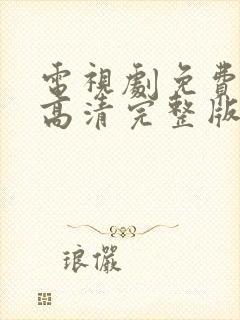 電視劇免費
高清完整版
琅儼